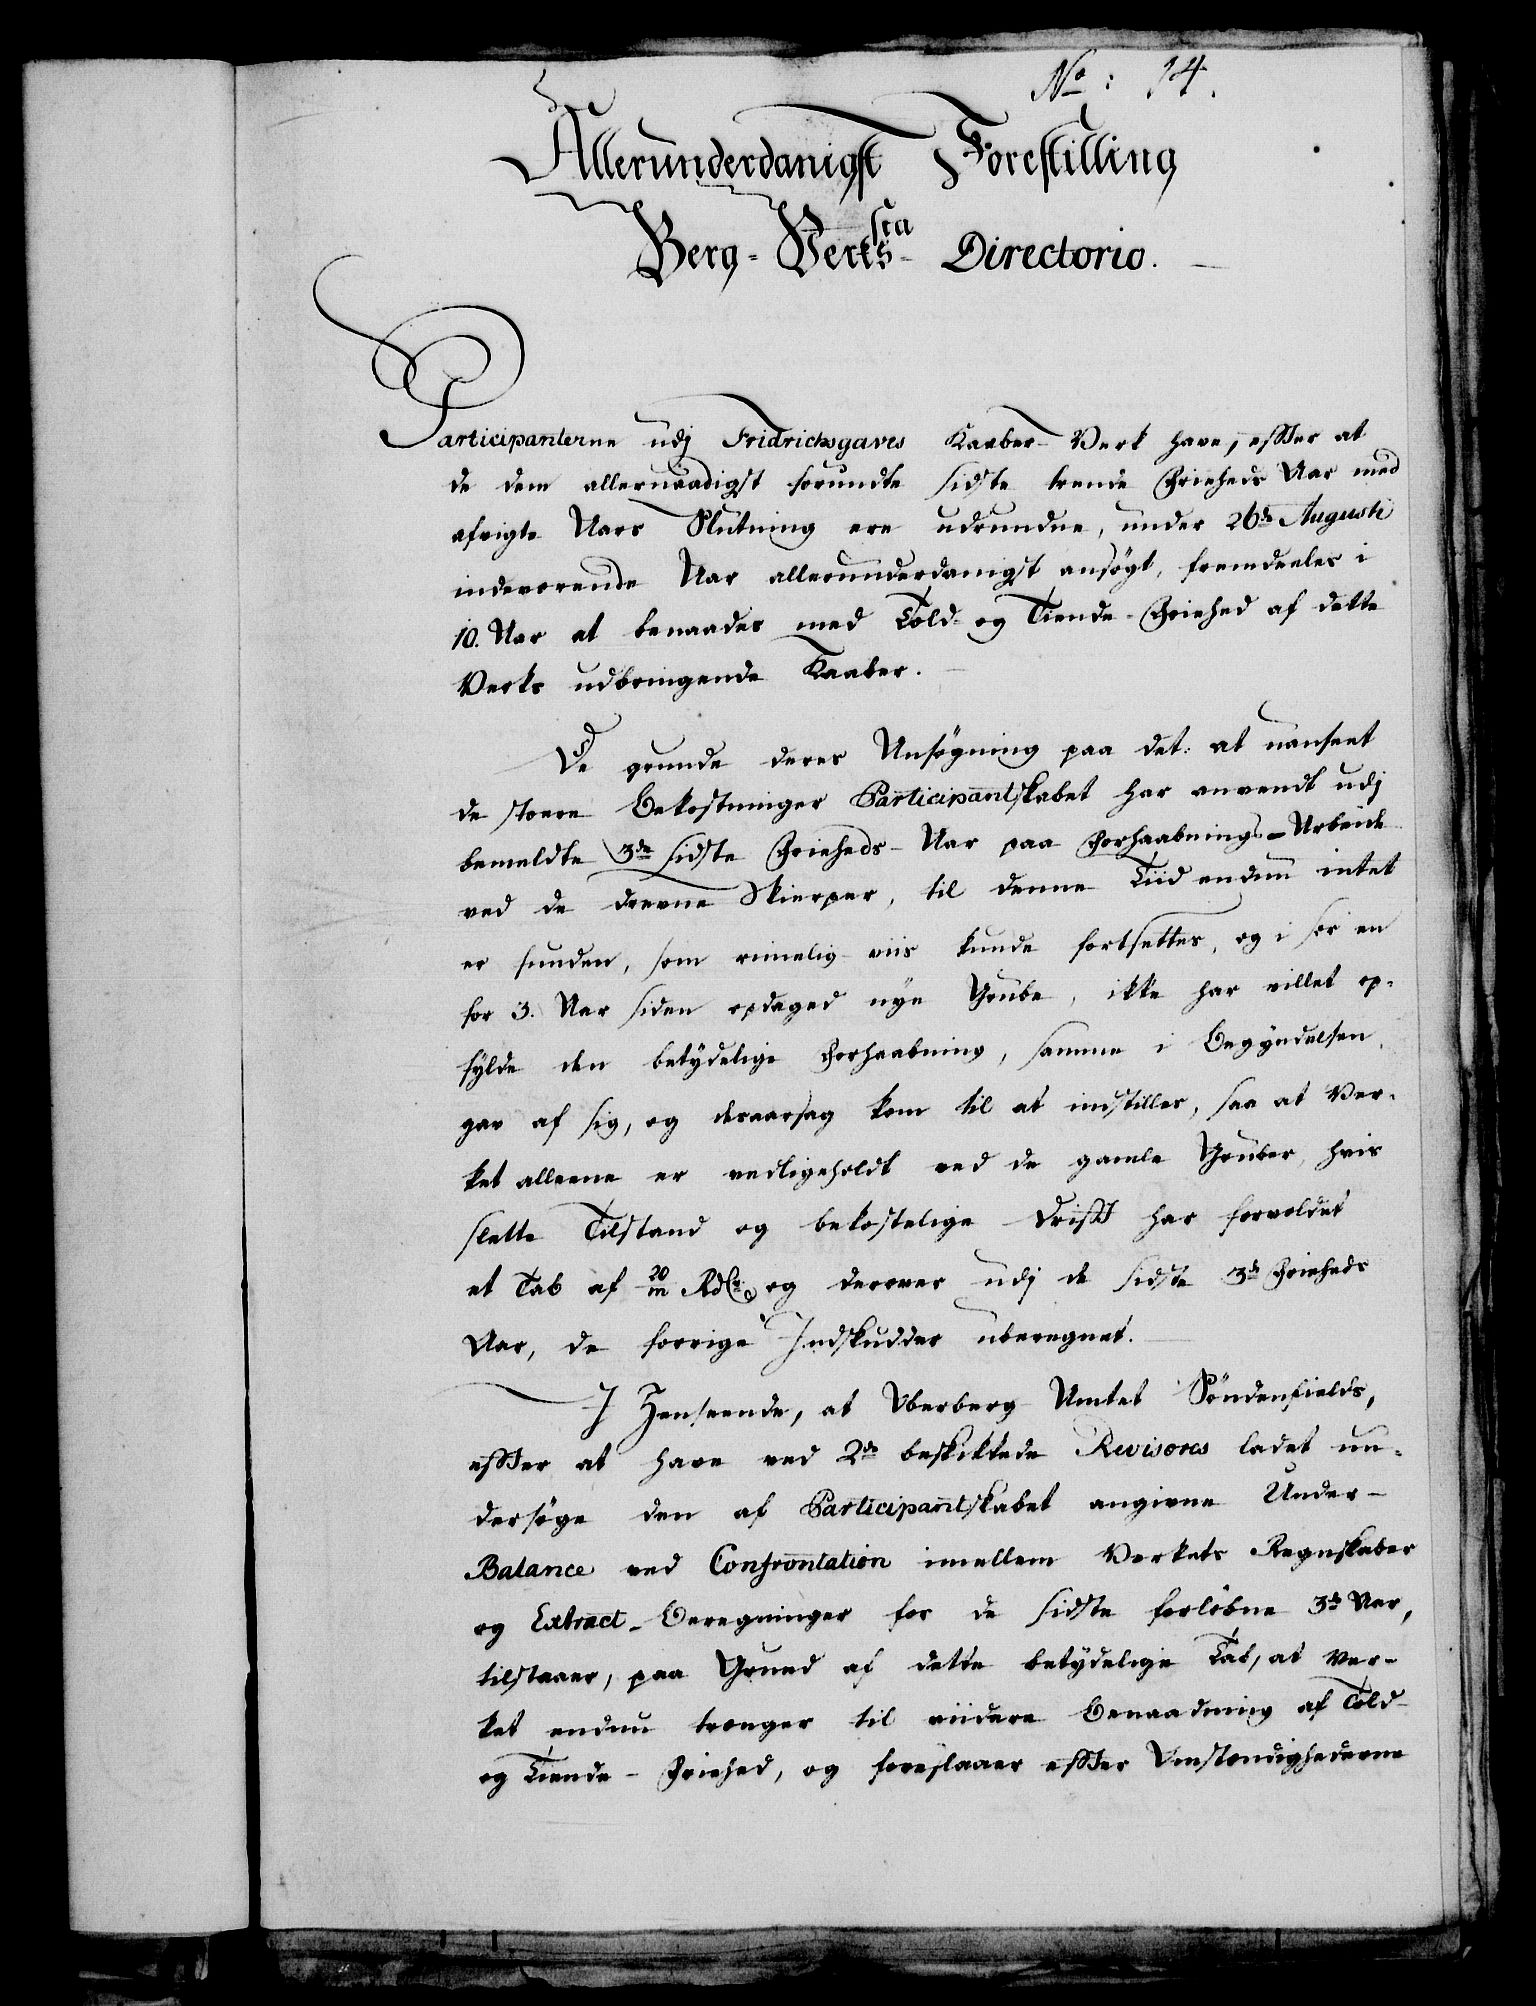 No: 14.
Allerunderdanigst Forestilling
fra
Berg-Verks- Directorio.
Participanterne udj Fridrichsgaves Kaaber-Verk have, effter at
de dem allernaadigst forundte sidste trende Frieheds Aar med
afvigte Aars Slutning ere udrundne, under 26de Augusti
indeværende Aar allerunderdanigst ansøgt, fremdeeles i
10. Aar at benaades med Told- og Tiende-Friehed af dette
Verks udbringende Kaaber.
De grunde deres Ansøgning paa det: at uanseet
de storre Bekostninger Participantskabet har anvendt udj
bemeldte 3de sidste Friheds-Aar paa Forhaabnings-Arbeide
ved de drevne Skierper, til denne Tiid endnu intet
er funden, som rimelig viis kunde fortsettes, og i sær en
for 3. Aar siden opdaged nye Grube, ikke har villet op-
fylde den betydelige Forhaabning, samme i Begyndelsen
gav af sig, og desaarsag kom til at indstilles, saa at Ver-
ket alleene er vedligeholdt ved de gamle Gruber, hvis
slette Tilstand og bekostelige Drifft har forvoldet
et Tab af 20/m Rdlr. og derover udj de sidste 3de Friheds
Aar, de forrige Indskudder uberegnet.
I Henseende, at Oberberg Amtet Søndenfields,
effter at have ved 2de beskikkede Revisores ladet un-
dersøge den af Participantskabet angivne Under-
Balance ved Confrontation imellem Verkets Regnskaber
og Extract-Beregninger for de sidste forløbne 3de Aar,
tilstaaer, paa Grund af dette betydelige Tab, at Ver-
ket endnu trænger til viidere Benaadning af Told-
og Tiende-Friehed, og foreslaaer effter Omstændighederne